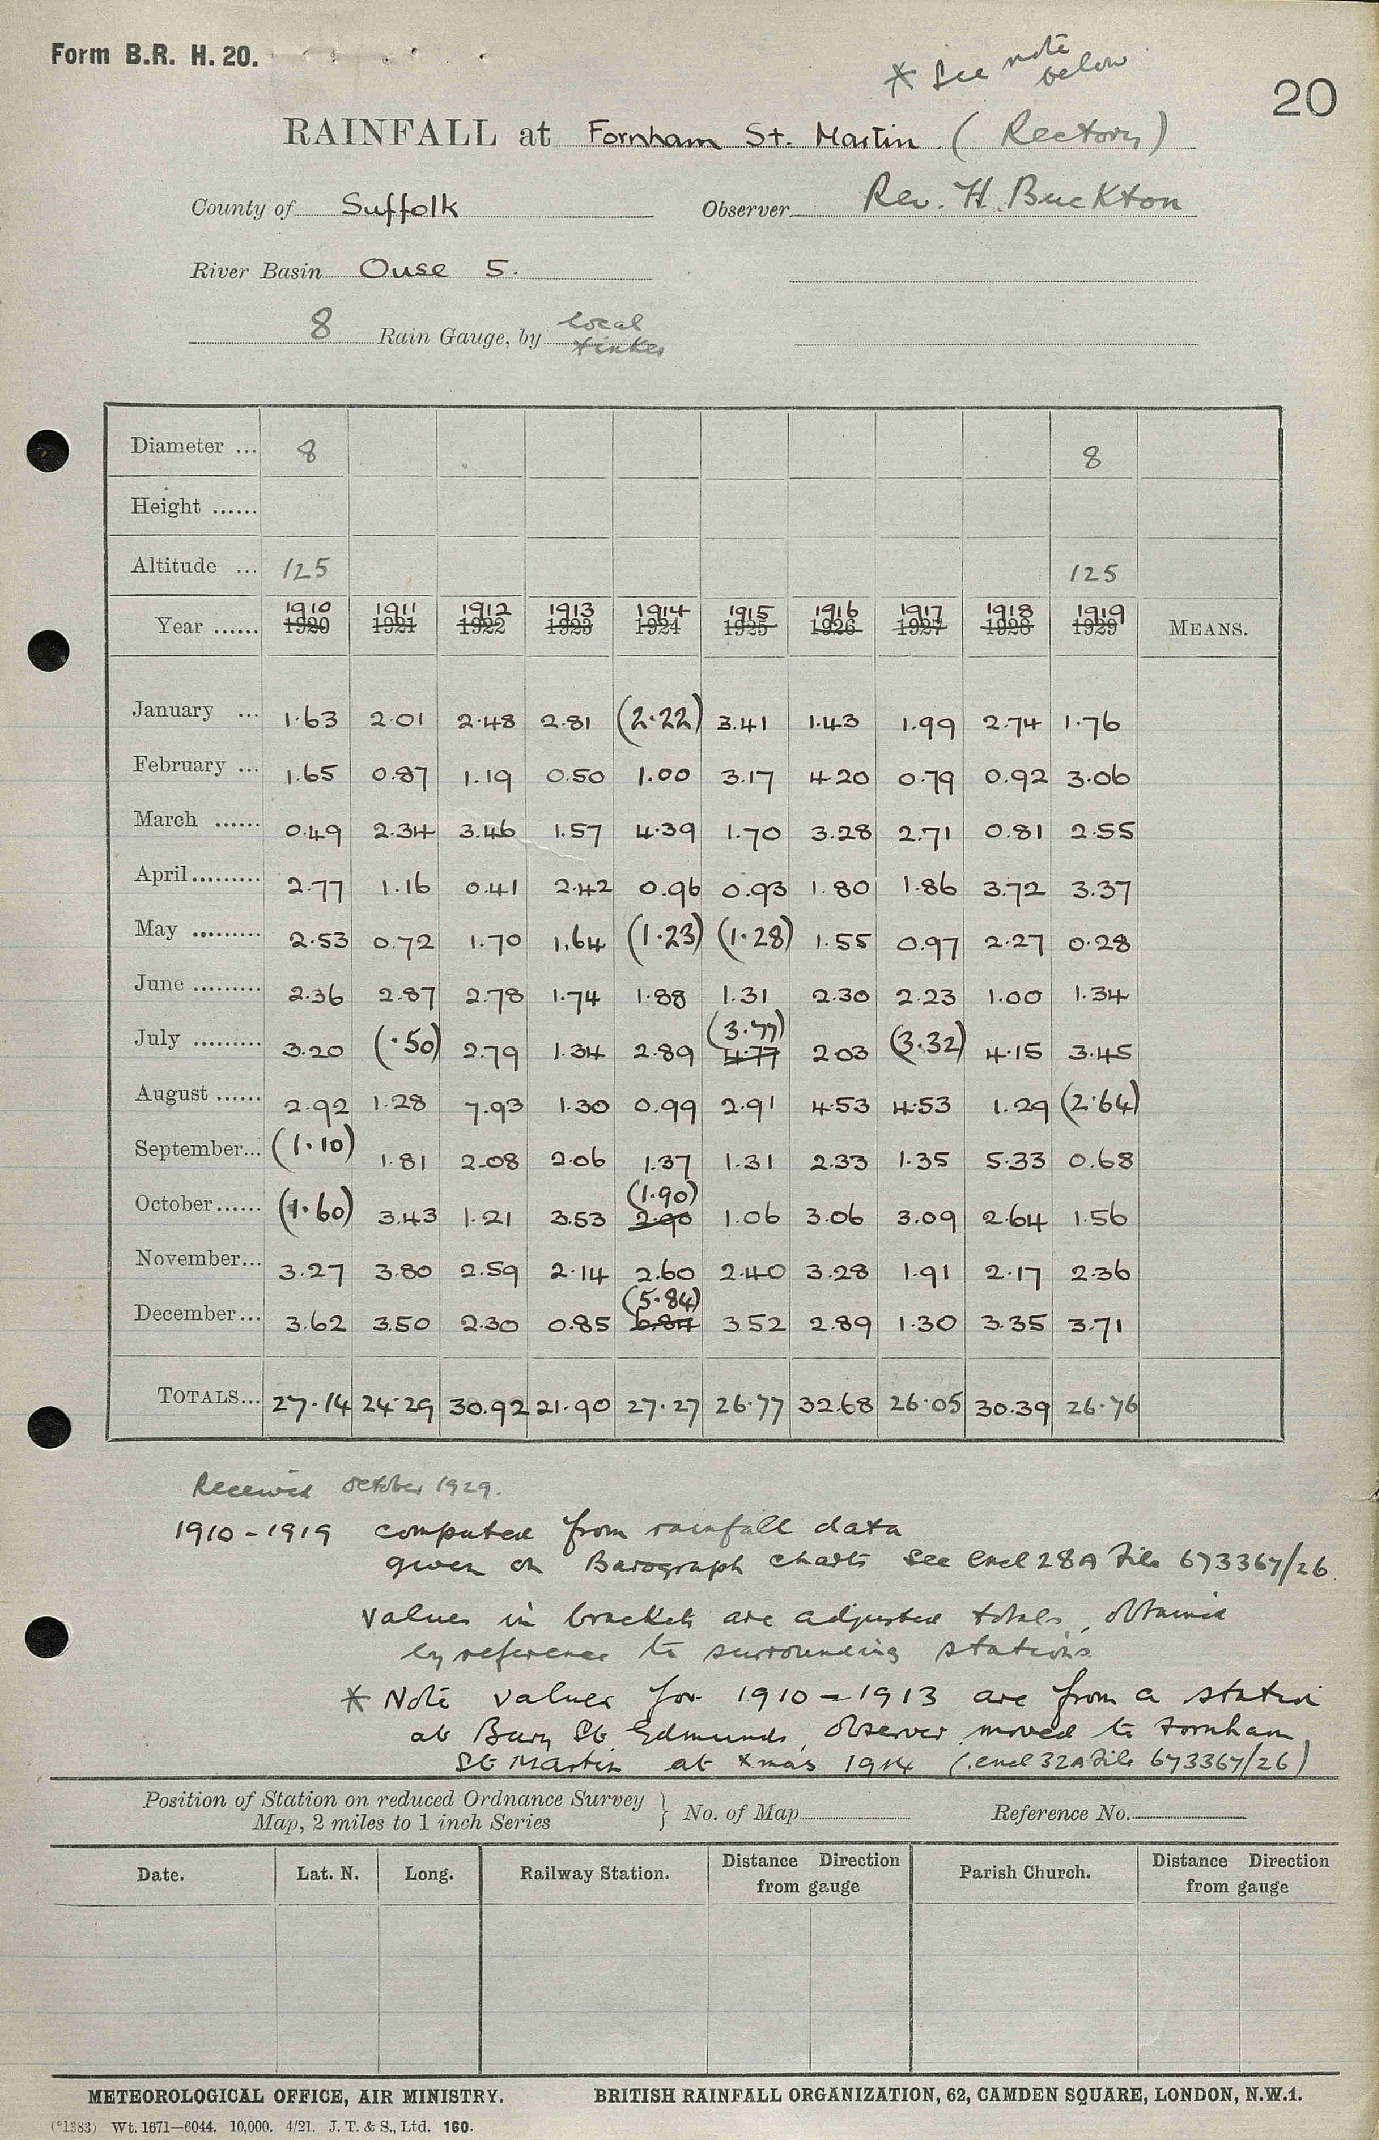 Form B.R. H. 20.
* See note below
20
RAINFALL at Fornham St. Martin (Rectory)
County of Suffolk Observer Rev. H. Buckton
River Basin Ouse 5.
8 Rain Gauge, by local tinker
Diameter ... 8 8
Height ......
Altitude ... 125 125
1910 1911 1912 1913 1914 1915 1916 1917 1918 1919
Year ...... 1920 1921 1922 1923 1924 1925 1926 1927 1928 1929 MEANS.
January ... 1.63 2.01 2.48 2.81 (2.22) 3.41 1.43 1.99 2.74 1.76
February ... 1.65 0.87 1.19 0.50 1.00 3.17 4.20 0.79 0.92 3.06
March ...... 0.49 2.34 3.46 1.57 4.39 1.70 3.28 2.71 0.81 2.55
April ......... 2.77 1.16 0.41 2.42 0.96 0.93 1.80 1.86 3.72 3.37
May ......... 2.53 0.72 1.70 1.64 (1.23) (1.28) 1.55 0.97 2.27 0.28
June ......... 2.36 2.87 2.78 1.74 1.88 1.31 2.30 2.23 1.00 1.34
(3.77)
July ......... 3.20 (.50) 2.79 1.34 2.89 4.77 2.03 (3.32) 4.15 3.45
August ...... 2.92 1.28 7.93 1.30 0.99 2.91 4.53 4.53 1.29 (2.64)
September... (1.10) 1.81 2.08 2.06 1.37 1.31 2.33 1.35 5.33 0.68
(1.90)
October ...... (1.60) 3.43 1.21 3.53 2.90 1.06 3.06 3.09 2.64 1.56
November... 3.27 3.80 2.59 2.14 2.60 2.40 3.28 1.91 2.17 2.36
(5.84)
December... 3.62 3.50 2.30 0.85 6.84 3.52 2.89 1.30 3.35 3.71
TOTALS... 27.14 24.29 30.92 21.90 27.27 26.77 32.68 26.05 30.39 26.76
Received October 1929.
1910-1919 computed from rainfall data
given on Barograph charts See Encl 28A File 673367/26.
Values in brackets are adjusted totals, obtained
by reference to surrounding stations
* Note values for 1910-1913 are from a station
at Bury St Edmunds, observer moved to Fornham
St Martin at Xmas 1914 (encl 32A File 673367/26)
Position of Station on reduced Ordnance Survey
Map, 2 miles to 1 inch Series } No. of Map Reference No.
Date. Lat. N. Long. Railway Station. Distance Direction from gauge Parish Church. Distance Direction from gauge
METEOROLOGICAL OFFICE, AIR MINISTRY. BRITISH RAINFALL ORGANIZATION, 62, CAMDEN SQUARE, LONDON, N.W.1.
(*1383) Wt. 1671—6044. 10,000. 4/21. J. T. & S., Ltd. 160.